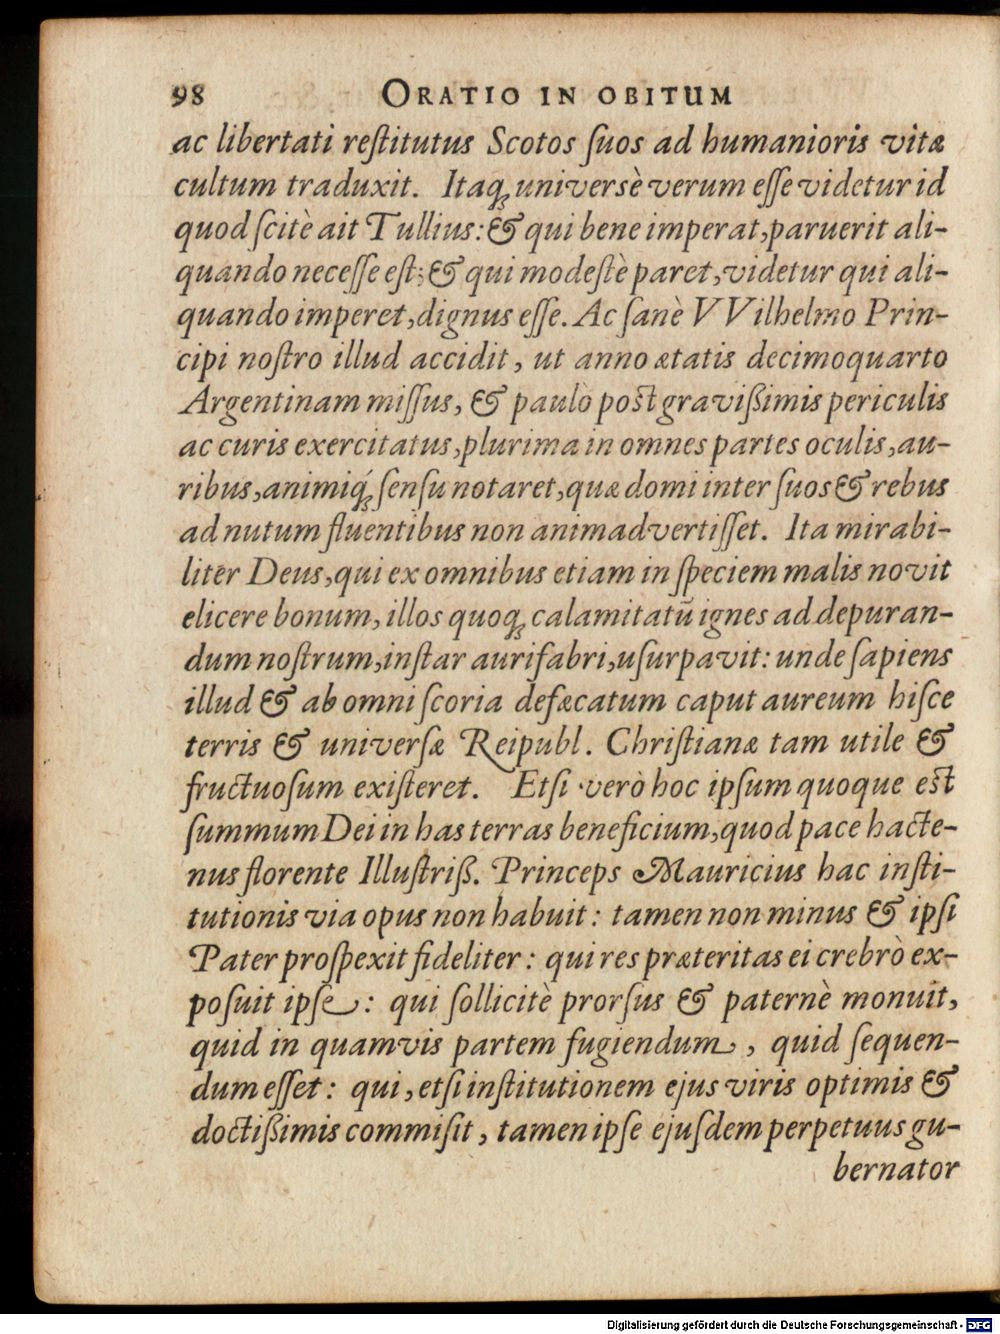 98 ORATIO IN OBITUM
ac libertati reſtitutus Scotos ſuos ad humanioris vitæ
cultum traduxit. Itaq; universè verum eſſe videtur id
quod ſcitè ait Tullius: & qui bene imperat, paruerit ali-
quando neceſſe eſt; & qui modeſtè paret, videtur qui ali-
quando imperet, dignus eſſe. Ac ſanè VVilhelmo Prin-
cipi noſtro illud accidit, ut anno ætatis decimoquarto
Argentinam miſſus, & paulò pòſt graviſſimis periculis
ac curis exercitatus, plurima in omnes partes oculis, au-
ribus, animiq́; ſenſu notaret, quæ domi inter ſuos & rebus
ad nutum fluentibus non animadvertiſſet. Ita mirabi-
liter Deus, qui ex omnibus etiam in ſpeciem malis novit
elicere bonum, illos quoq; calamitatũ ignes ad depuran-
dum noſtrum, inſtar aurifabri, uſurpavit: unde ſapiens
illud & ab omni ſcoria defæcatum caput aureum hiſce
terris & univerſæ Reipubl. Chriſtianæ tam utile &
fructuoſum exiſteret. Etſi verò hoc ipſum quoque eſt
ſummum Dei in has terras beneficium, quod pace hacte-
nus florente Illuſtriß. Princeps Mauricius hac inſti-
tutionis via opus non habuit: tamen non minus & ipſi
Pater proſpexit fideliter: qui res præteritas ei crebrò ex-
poſuit ipſe: qui ſollicitè prorſus & paternè monuit,
quid in quamvis partem fugiendum, quid ſequen-
dum eſſet: qui, etſi inſtitutionem ejus viris optimis &
doctißimis commiſit, tamen ipſe ejuſdem perpetuus gu-
bernator
Digitalisierung gefördert durch die Deutsche Forschungsgemeinschaft - DFG